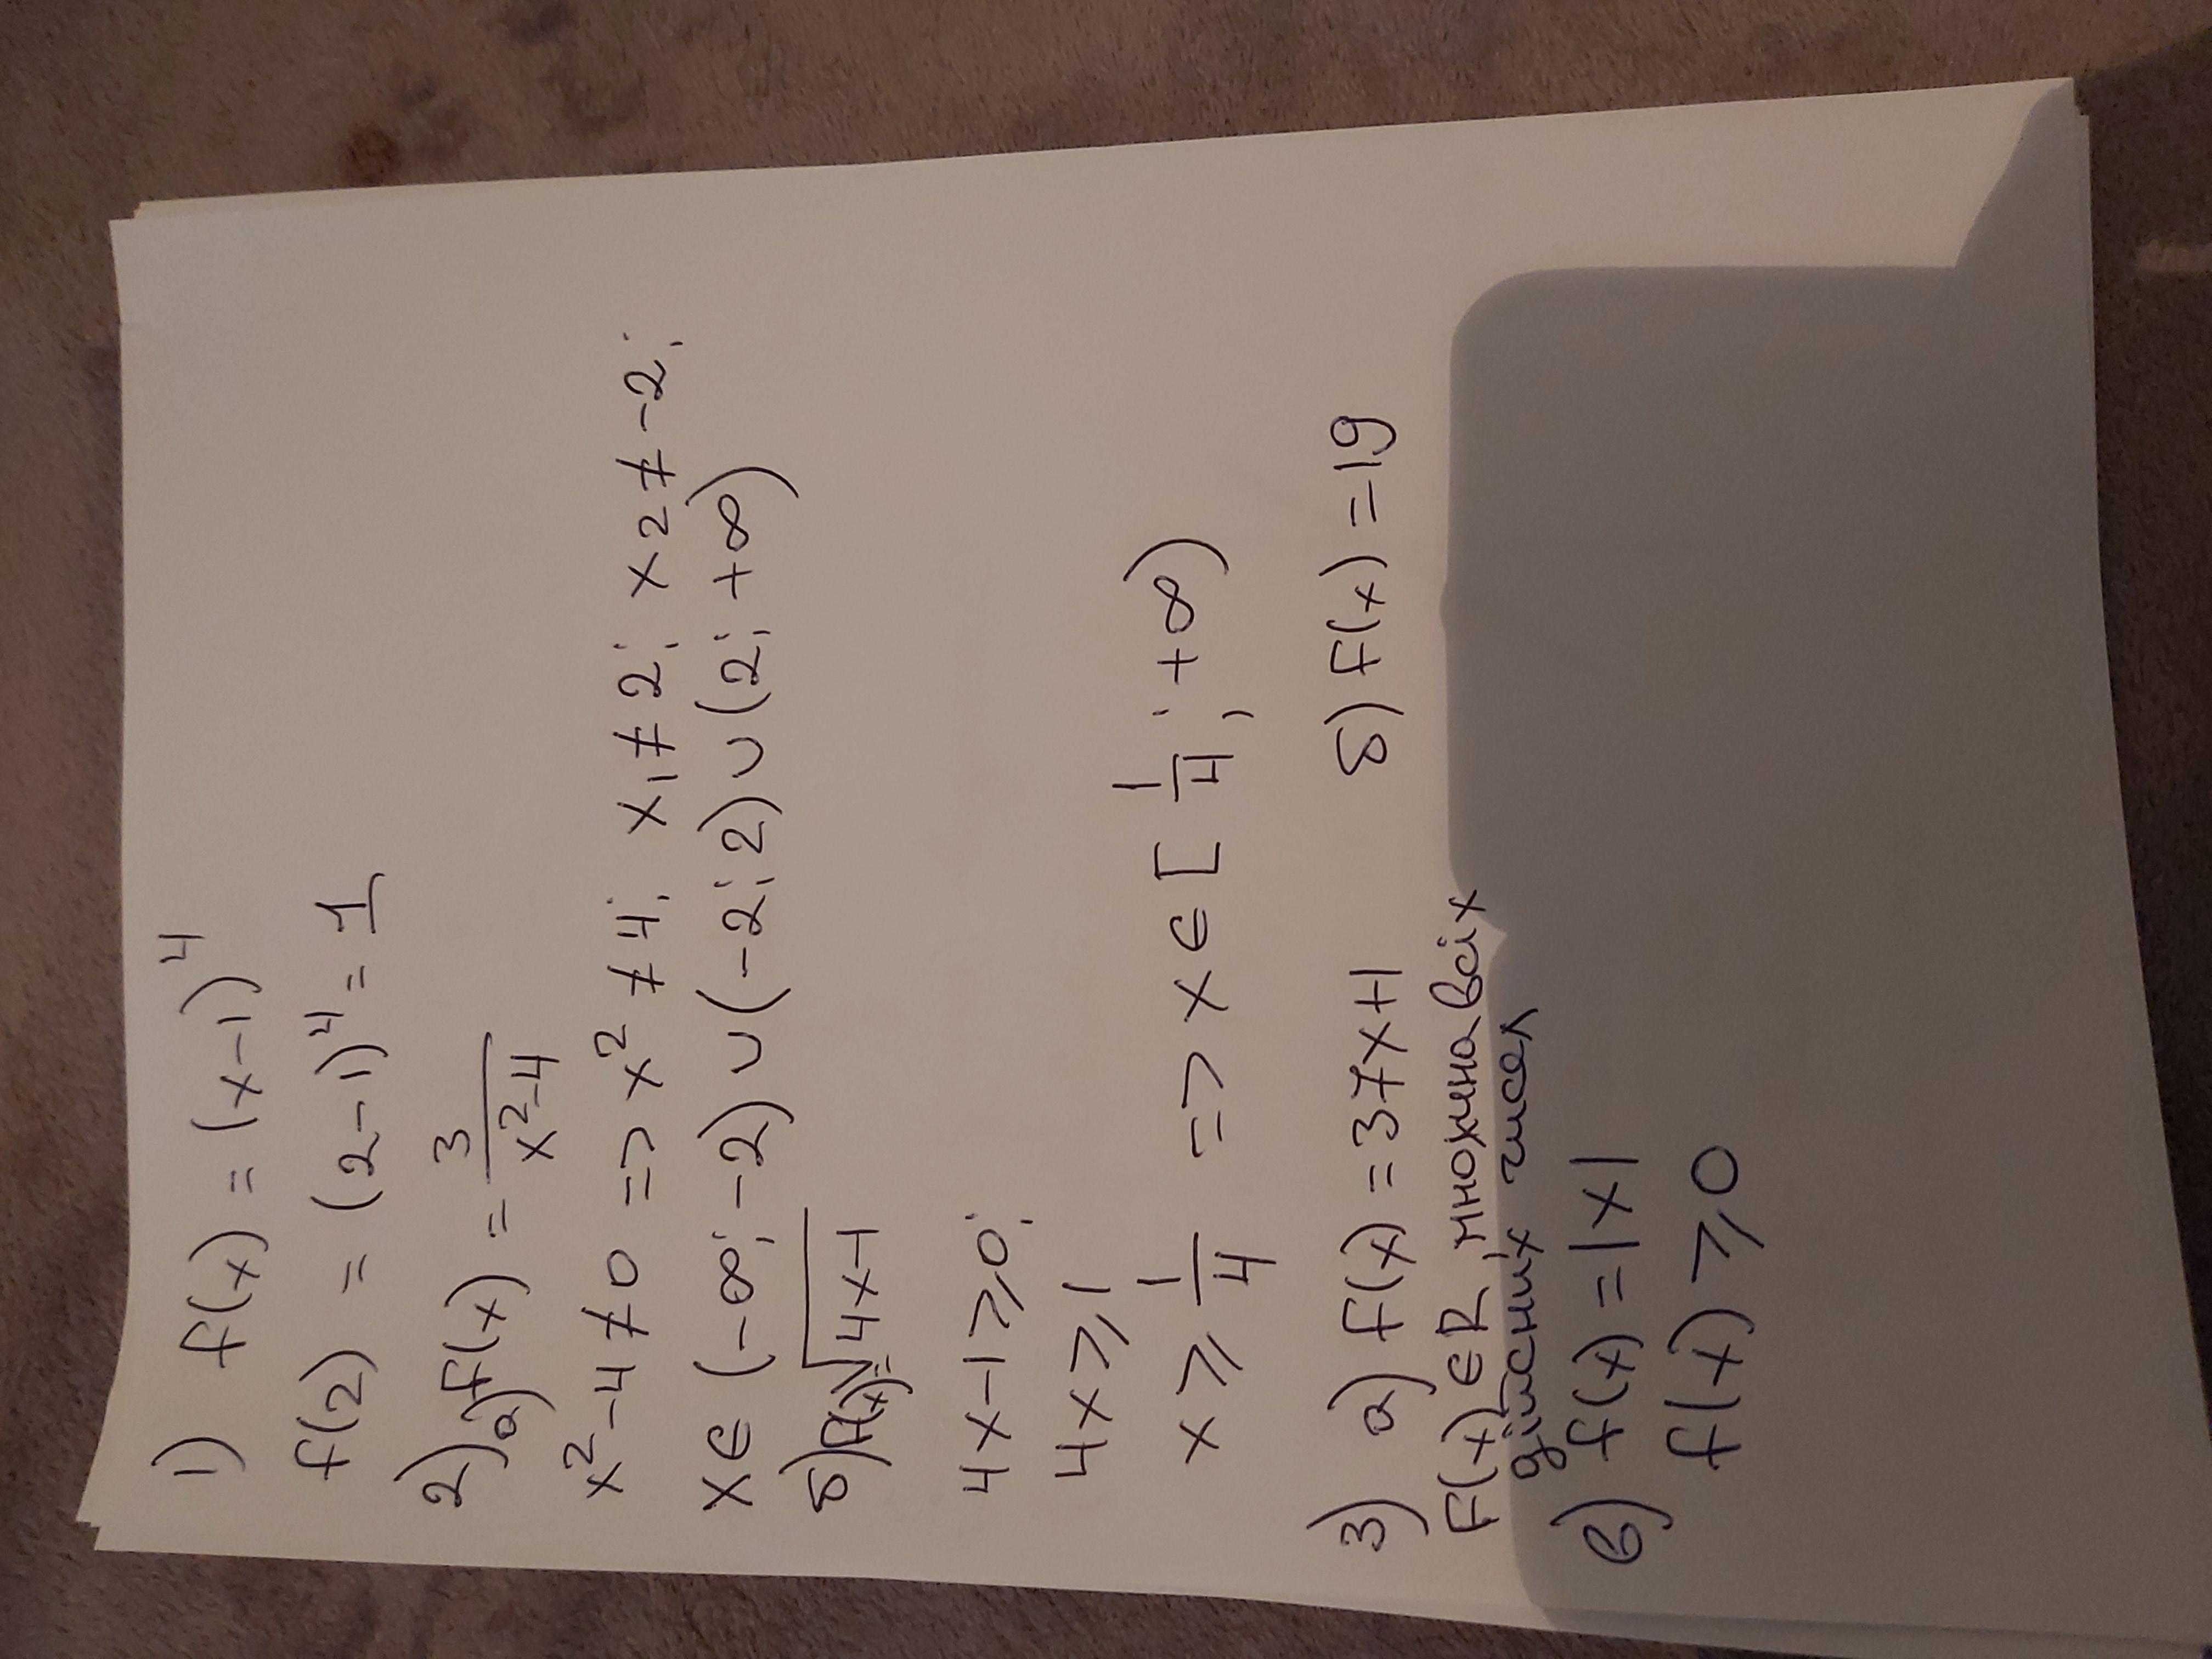 1) f(x) = (x-1)⁴
f(2) = (2-1)⁴ = 1
2) a) f(x) = 3/(x²-4)
x²-4≠0 => x²≠4; x₁≠2; x₂≠-2;
x∈(-∞;-2)∪(-2;2)∪(2;+∞)
б) f(x)=√(4x-1)
4x-1⩾0;
4x⩾1
x⩾1/4 => x∈[1/4;+∞)
3) a) f(x)=37x+1 б) f(x)=19
f(x)∈R, множина всіх
дійсних чисел
в) f(x)=|x|
f(x)⩾0